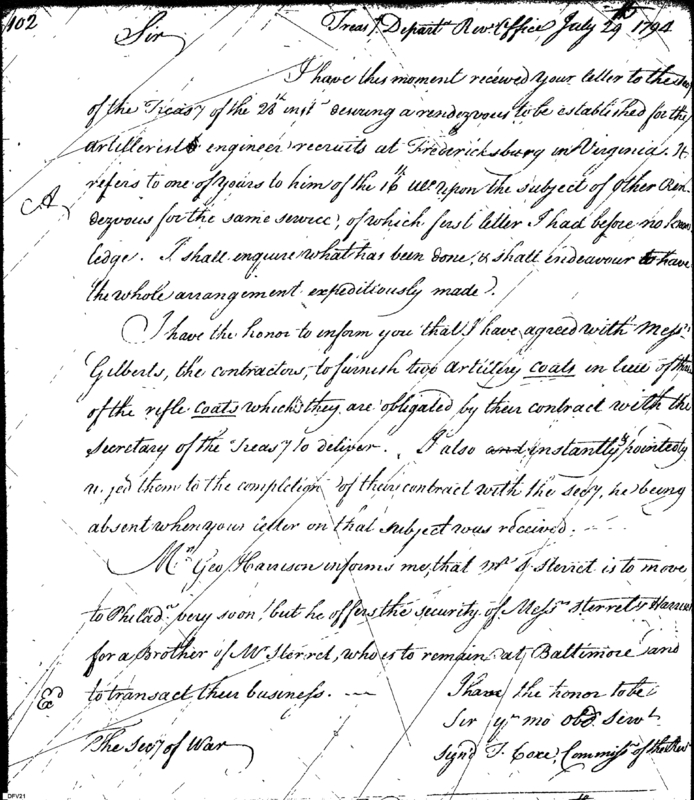 102
Treasy. Depart Revr. Office, July 29th 1794
Sir
I have this moment received your letter to the secy
of the Treasy of the 28th inst desiring a rendezvous to be established for the
Artillerist & engineer recruits at Fredericksburg in Virginia. It
refers to one of yours to him of the 16th ulto upon the subject of other Ren
A
dezvous for the same service, of which first letter I had before no know
ledge. I shall enquire what has been done, & shall endeavour to have
the whole arrangement expeditiously made.
I have the honor to inform you that I have agreed with Messrs
Gilberts, the contractors, to furnish two artillery coats in lieu of three
of the rifle coats which they are obligated by their contract with the
Secretary of the Treasy to deliver. I also and instantly & pointedly
urged them to the completion of their contract with the Secy, he being
absent when your letter on that subject was received.
Mr Geo Harrison informs me, that Mr S Sterret is to move
to Philada very soon, but he offers the security of Messrs Sterret & Harrison
for a Brother of Mr Sterret, who is to remain at Baltimore and
Ed
to transact their business. —
I have the honor to be
Sir yr mo obdt Servt.
The Secy of War
Signd T. Coxe, Commissr of the Revr
DFV21